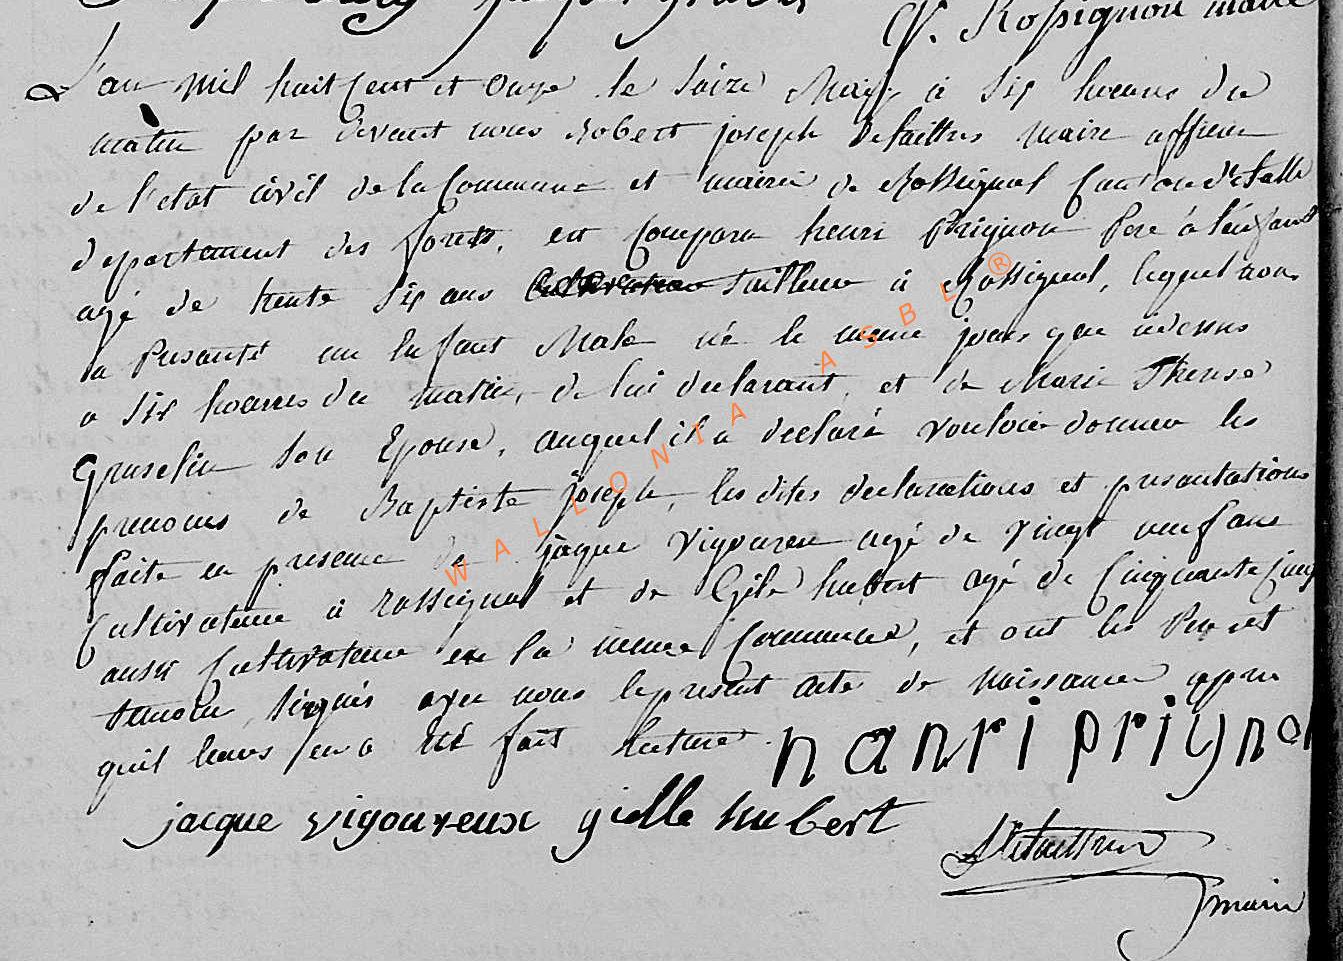 V. Rossignon maire
L'an mil huit cent et onze le saize May à six heures du
matin par devant nous Robert joseph Defaittres maire officier
de l'etat civil de la Commune et mairie de Rossignol Canton d'Etalle
departement des forets, est Comparu henri Prignon Pere à l'enfant
agé de trente six ans Cultivateur Tailleur à Rossignol, lequel nous
a Presanté un Enfant Male né le meme jours que cidessus
a six heures du matin, de lui declarant, et de Marie Therese
Gruselin son Epouse, auquel il a declaré vouloir donner les
prenoms de Baptiste joseph, les dites declarations et presantations
faite en presence de jaque Vigoureu agé de vingt neuf ans
Cultivateur à rossignol et de Gile hubert agé de Cinquante Cinq
aussi Cultivateur en la meme Commune, et ont les Pere et
temoin, signés avec nous le present acte de naissance apre
quil leurs en a été fait lecture.
hanri prigno
jacque vigoureux gielle hubert
maire
WALLONIA ASBL ®